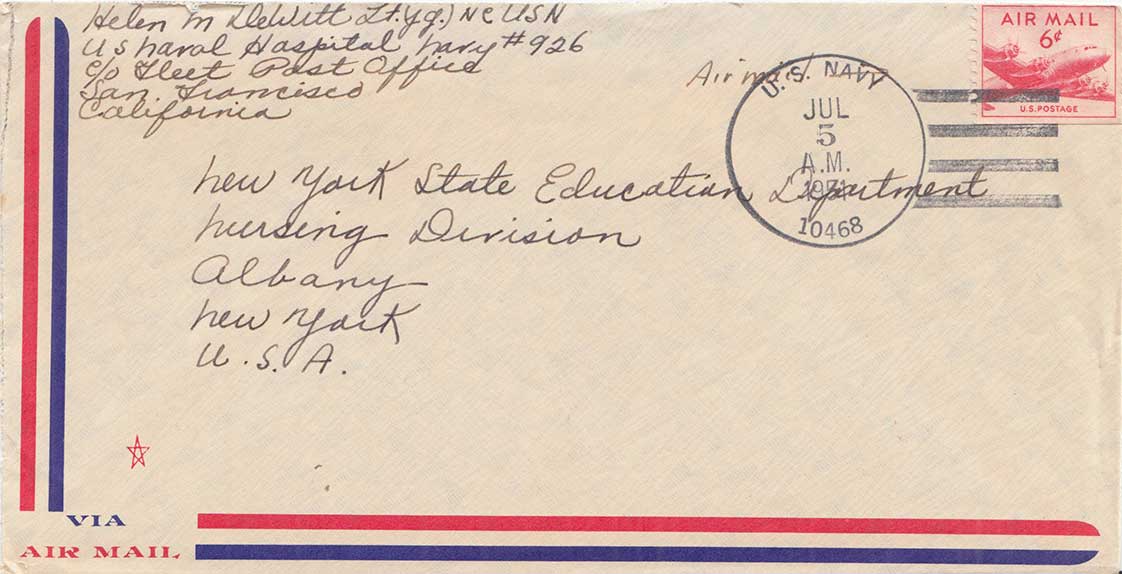 Helen M DeWitt Lt.(jg.) NC USN
U S Naval Hospital Navy #926
c/o Fleet Post Office
San Francisco
California
Air mail
AIR MAIL
6¢
U.S. POSTAGE
U.S. NAVY
JUL
5
A.M.
10468
New York State Education Department
Nursing Division
Albany
New York
U.S.A.
VIA
AIR MAIL